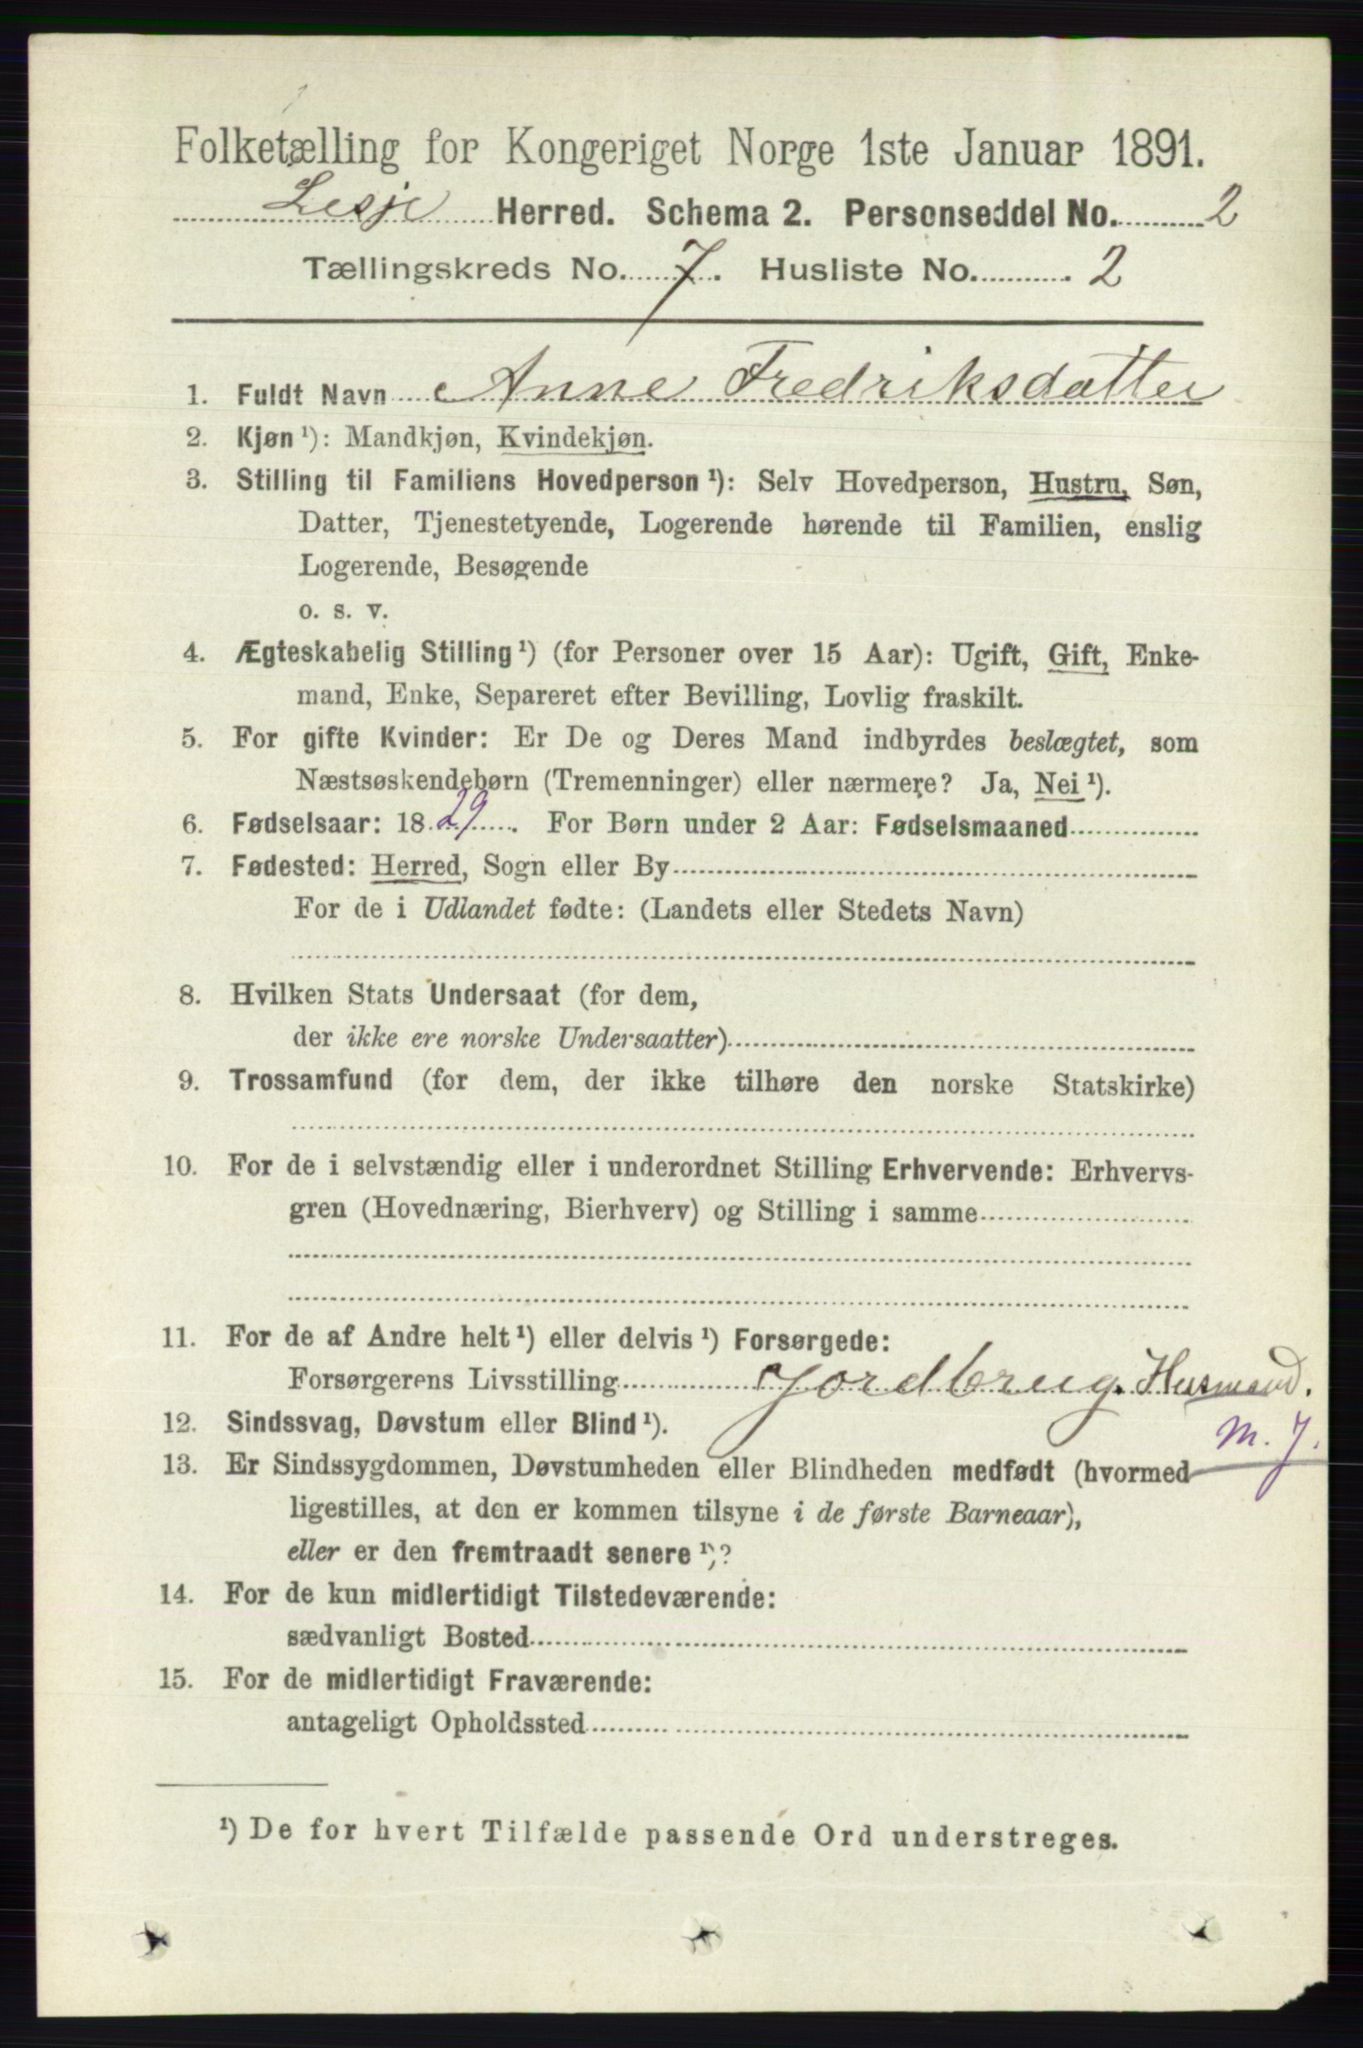 Folketælling for Kongeriget Norge 1ste Januar 1891.
Lesje Herred. Schema 2. Personseddel No. 2
Tællingskreds No. 7. Husliste No. 2
1. Fuldt Navn Anne Fredriksdatter
2. Kjøn ¹): Mandkjøn, Kvindekjøn.
3. Stilling til Familiens Hovedperson ¹): Selv Hovedperson, Hustru, Søn,
Datter, Tjenestetyende, Logerende hørende til Familien, enslig
Logerende, Besøgende
o. s. v.
4. Ægteskabelig Stilling ¹) (for Personer over 15 Aar): Ugift, Gift, Enke-
mand, Enke, Separeret efter Bevilling, Lovlig fraskilt.
5. For gifte Kvinder: Er De og Deres Mand indbyrdes beslægtet, som
Næstsøskendebørn (Tremenninger) eller nærmere? Ja, Nei ¹).
6. Fødselsaar: 1829. For Børn under 2 Aar: Fødselsmaaned
7. Fødested: Herred, Sogn eller By
For de i Udlandet fødte: (Landets eller Stedets Navn)
8. Hvilken Stats Undersaat (for dem,
der ikke ere norske Undersaatter)
9. Trossamfund (for dem, der ikke tilhøre den norske Statskirke)
10. For de i selvstændig eller i underordnet Stilling Erhvervende: Erhvervs-
gren (Hovednæring, Bierhverv) og Stilling i samme
11. For de af Andre helt ¹) eller delvis ¹) Forsørgede:
Forsørgerens Livsstilling Jordbrug. Husmand.
M. J.
12. Sindssvag, Døvstum eller Blind ¹).
13. Er Sindssygdommen, Døvstumheden eller Blindheden medfødt (hvormed
ligestilles, at den er kommen tilsyne i de første Barneaar),
eller er den fremtraadt senere ¹)?
14. For de kun midlertidigt Tilstedeværende:
sædvanligt Bosted
15. For de midlertidigt Fraværende:
antageligt Opholdssted
¹) De for hvert Tilfælde passende Ord understreges.